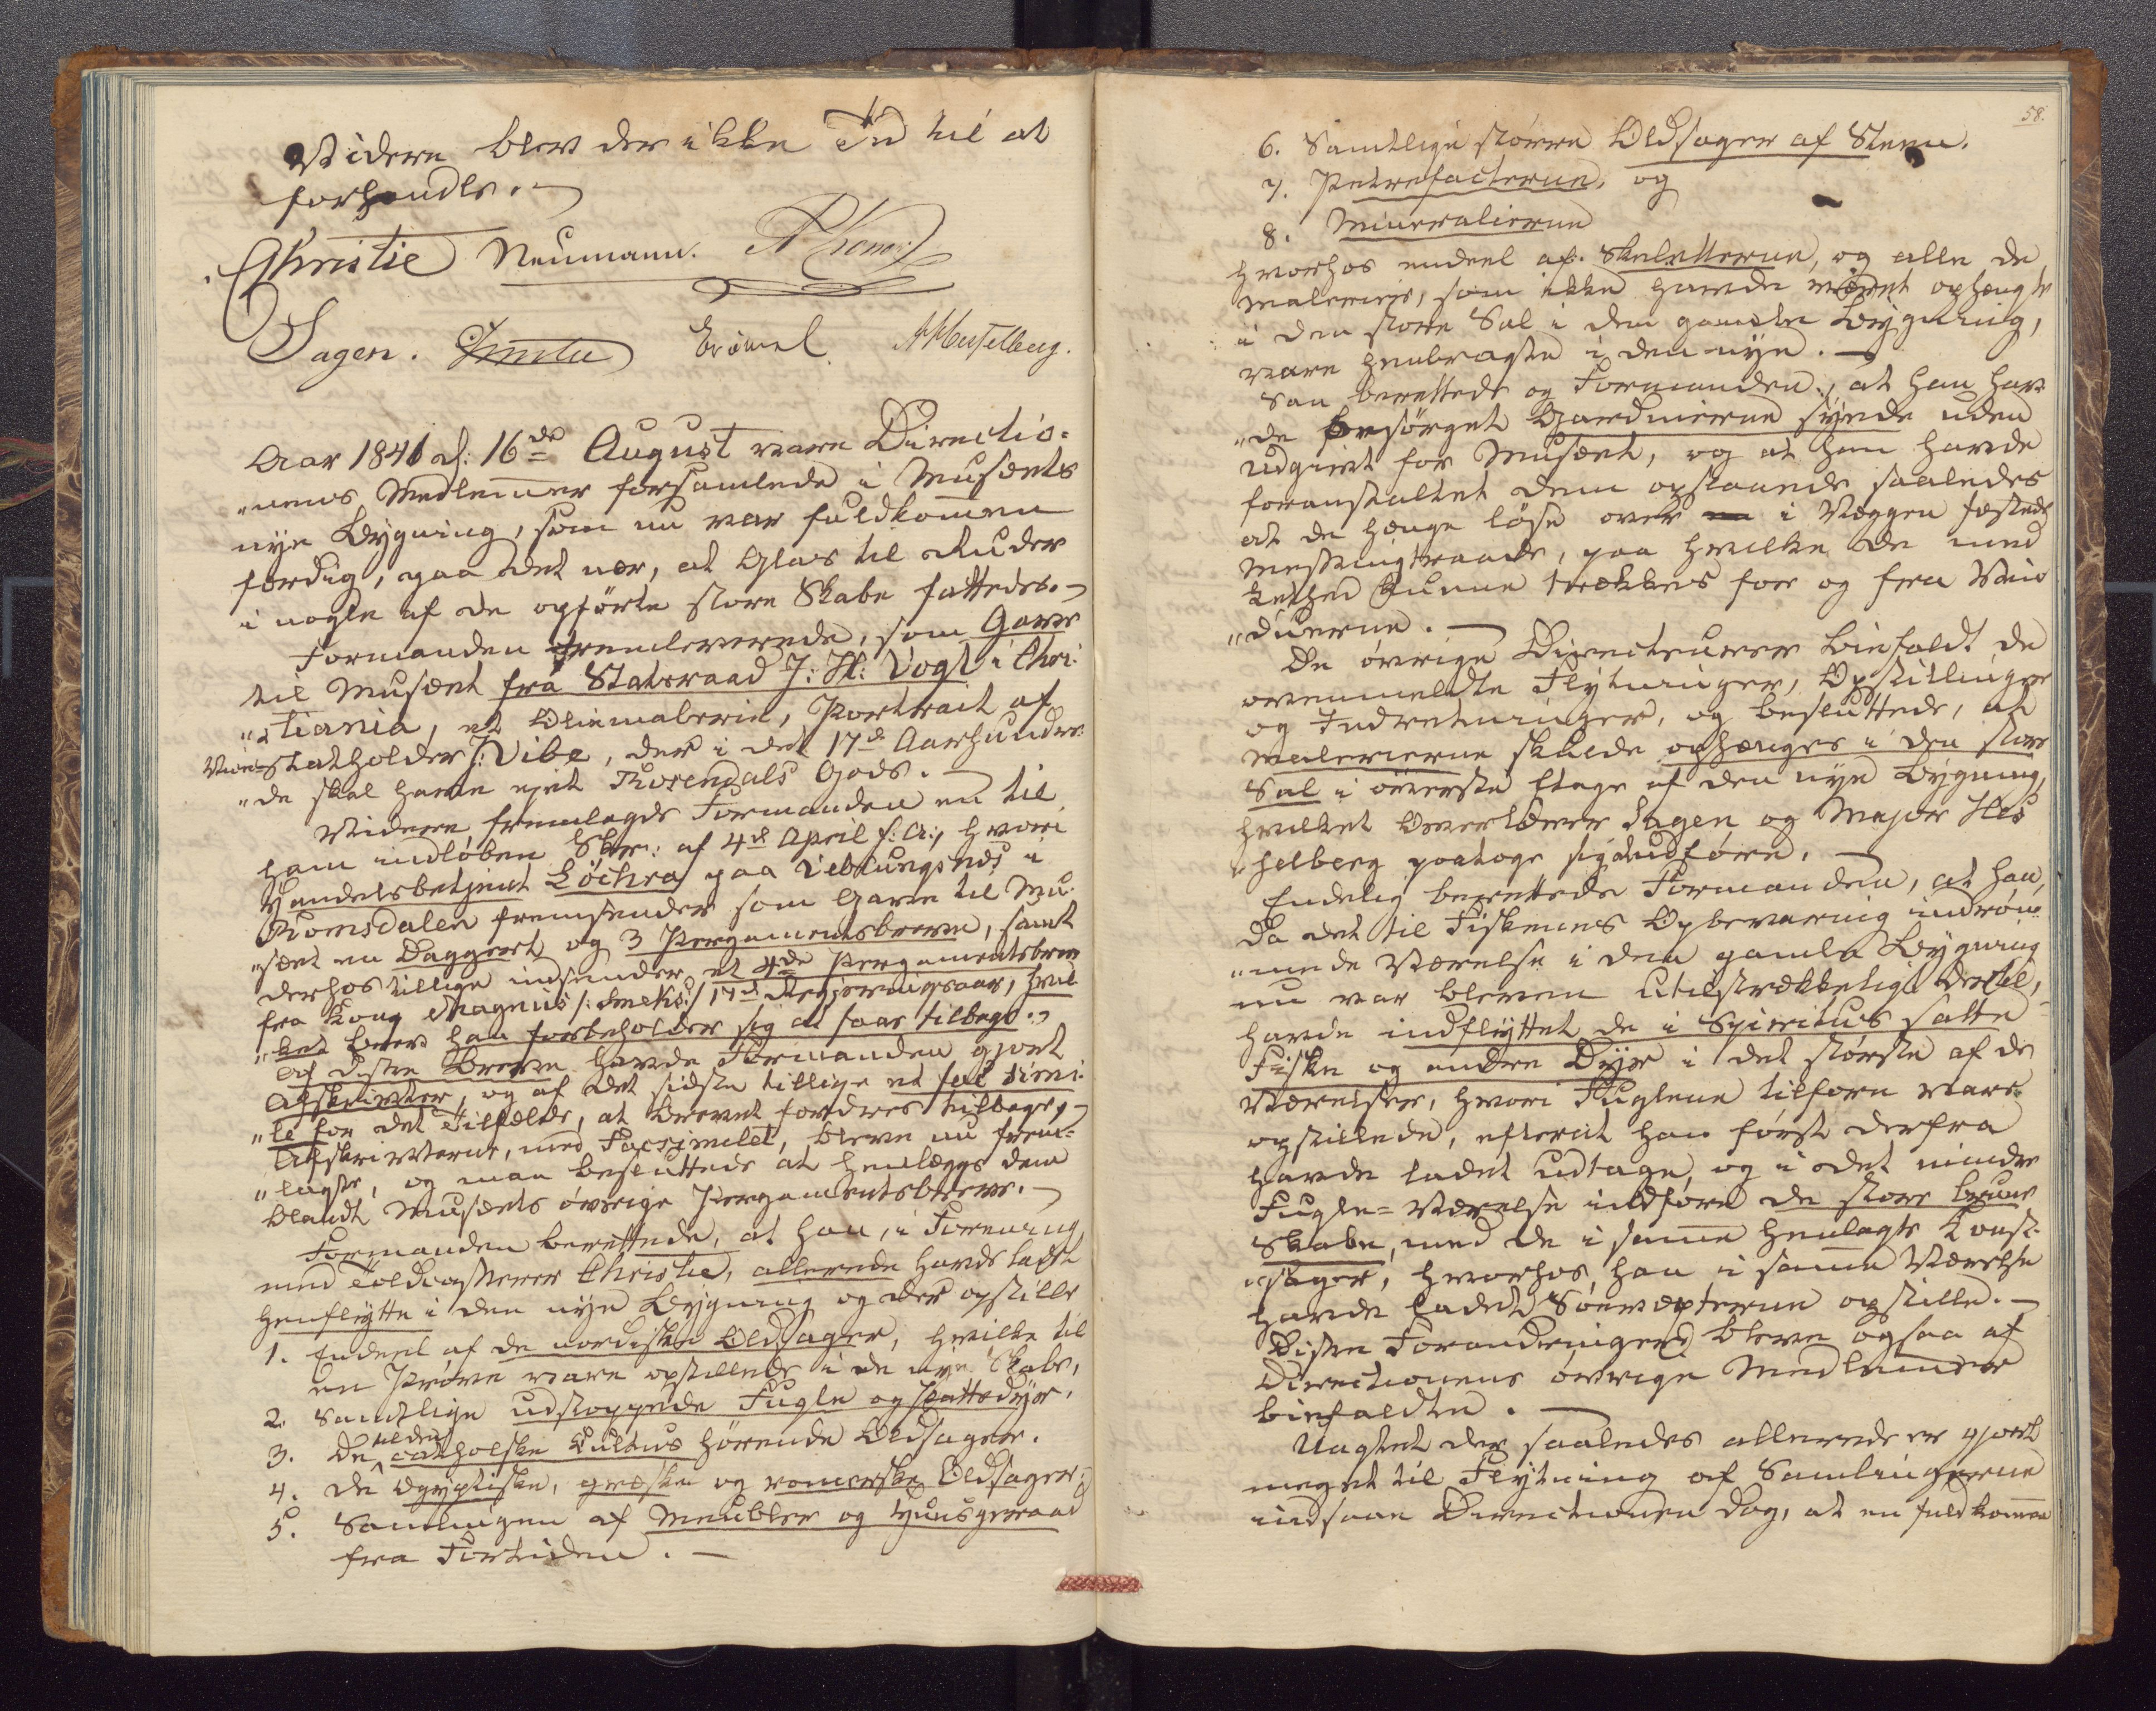 Videre blev der ikke Tid til at
forhandle. —
Christie Neumann.
Sagen. Hesselberg.
Aar 1841 d: 16de August vare Directio-
„nens Medlemmer forsamlede i Musæets
nye Bygning, som nu var fuldkommen
færdig, paa det nær, at Glas til Ruder
i nogle af de opførte store Skabe fattedes. —
Formanden fremleverede, som Gave
til Musæet fra Statsraad J: H: Vogt i Chri-
„stiania, et Oliemalerie, Portrait af
Vice-Statholder J: Vibe, der i det 17de Aarhundre-
„de skal have ejet Rosendals Gods. —
Videre fremlagde Formanden en til
ham indløben Skr: af 4de April f: A:, hvori
Handelsbetjent Löchra paa Veblungsnæs i
Romsdalen fremsender som Gave til Mu-
„sæet en Daggert og 3 Pergamentsbreve, samt
derhos tillige indsender et 4de Pergamentsbrev
fra Kong Magnus /: Smeks :/ 17de Regjeringsaar, hvil-
„ket Brev han forbeholder sig at faae tilbage. —
Af disse Breve havde Formanden gjort
Afskrivter, og af det sidste tillige et fac simi-
„le for det Tilfælde, at Brevet fordres tilbage, —
Afskrivterne, med Facsimilet, bleve nu frem-
„lagte, og man besluttede at henlægge dem
blandt Musæets øvrige Pergamentsbreve. —
Formanden berettede, at han, i Forening
med Toldcasserer Christie, allerede havde ladet
henflytte i den nye Bygning og der opstille
1. Endeel af de nordiske Oldsager, hvilke til
en Prøve vare opstillede i de nye Skabe,
2. Samtlige udstoppede Fugle og Pattedyr.
3. De til den catholske Cultus hørende Oldsager.
4. De Ægyptiske, græske og romerske Oldsager;
5. Samlingen af Meubler og Huusgeraad
fra Fortiden. —
58.
6. Samtlige større Oldsager af Steen.
7. Petrefacterne, og
8. Mineralierne
hvorhos endeel af Skeletterne, og alle de
Malerier, som ikke havde været ophængte
i den store Sal i den gamle Bygning,
vare henbragte i den nye. —
Saa berettede og Formanden, at han hav-
„de besørget Gardinerne syede uden
Udgivt for Musæet, og at han havde
foranstaltet dem opslaaede saaledes
at de hænge løse over i Væggen fæstede
Messingtraade, paa hvilke de med
Lethed kunne trækkes for og fra Vin-
„duerne. —
De øvrige Directeurer biefaldt de
ovenmeldte Flytninger, Opstillinger
og Indretninger, og besluttede, at
Malerierne skulde ophænges i den store
Sal i øverste Etage af den nye Bygning,
hvilket Overlærer Sagen og Major Hes-
„selberg paatoge sig at udføre. —
Endelig berettede Formanden, at han,
da det til Fiskenes Opbevaring indrøm-
„mede Værelse i den gamle Bygning
nu var bleven utilstrækkelig dertil,
havde indflyttet de i Spiritus satte
Fiske og andre Dyr i det største af de
Værelser, hvori Fuglene tilforn vare
opstillede, efterat han først derfra
havde ladet udtage, og i det mindre
Fugle-Værelse indføre de store brune
Skabe, med de i samme henlagte Konst-
„sager, hvorhos han i samme Værelse
havde ladet Søevæxterne opstille. —
Disse Forandringer bleve ogsaa af
Directionens øvrige Medlemmer
biefaldte. —
Uagtet der saaledes allerede er gjort
meget til Flytning af Samlingerne
indsaae Directionen dog, at en fuldkommen